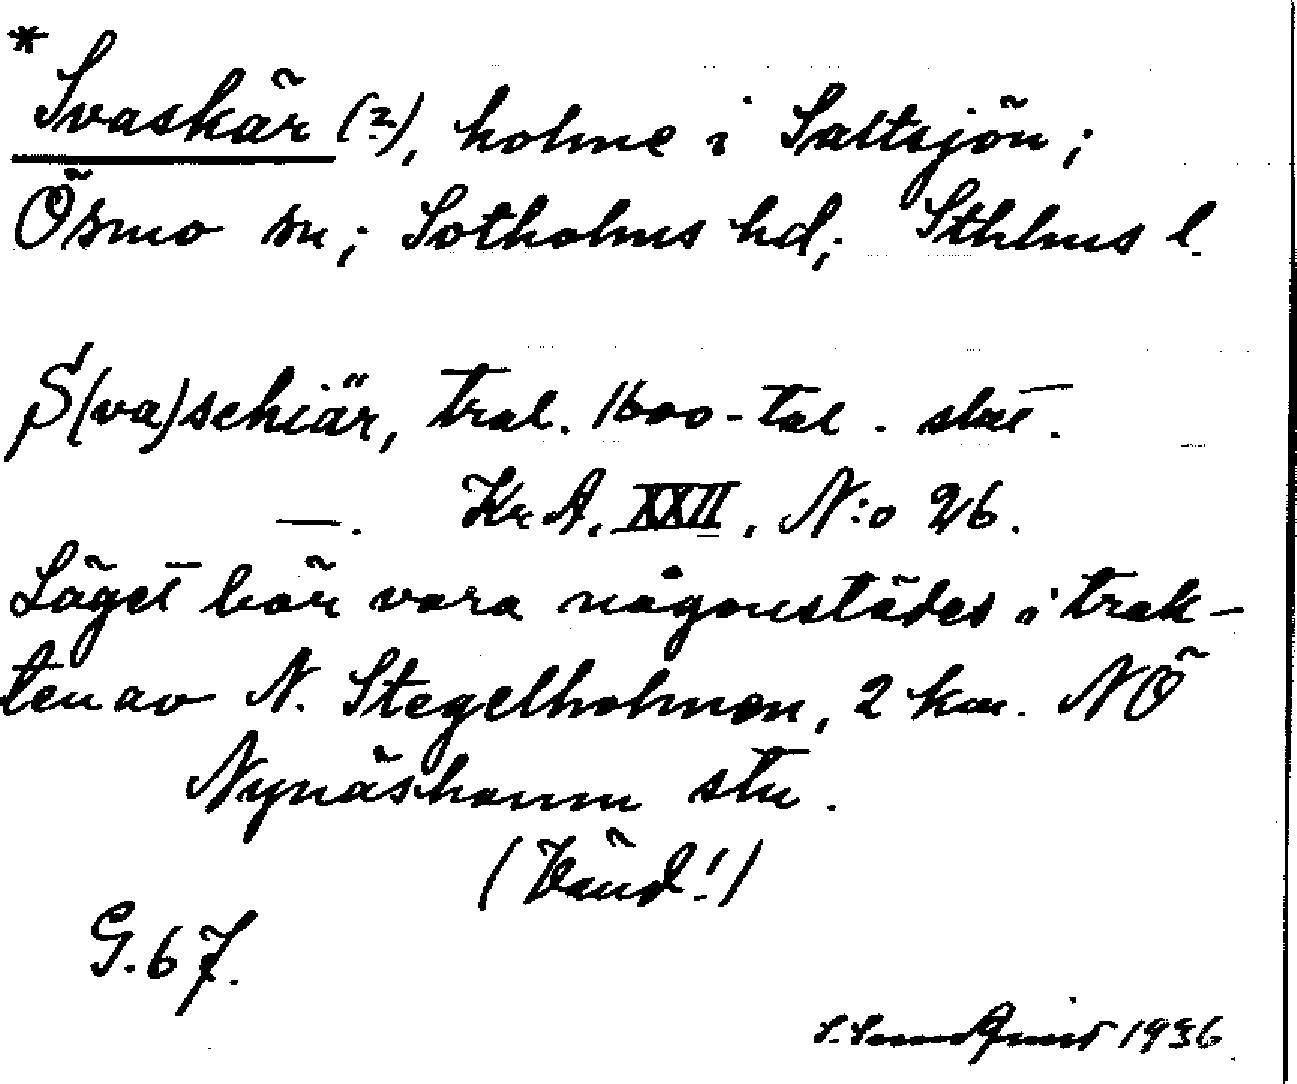 * Svaskär (?), holme i Saltsjön;
Ösmo sn; Sotholms hd; Sthlms l.
S(va)schiär, tral. 1600-tal.
—. Kr A, XXII, N:o 26.
Läget bör vara någonstädes i trak-
ten av N. Stegelholmen, 2 km. NÖ
Nynäshamn stn.
(Vänd!)
G. 67.
S. Sundquist 1936